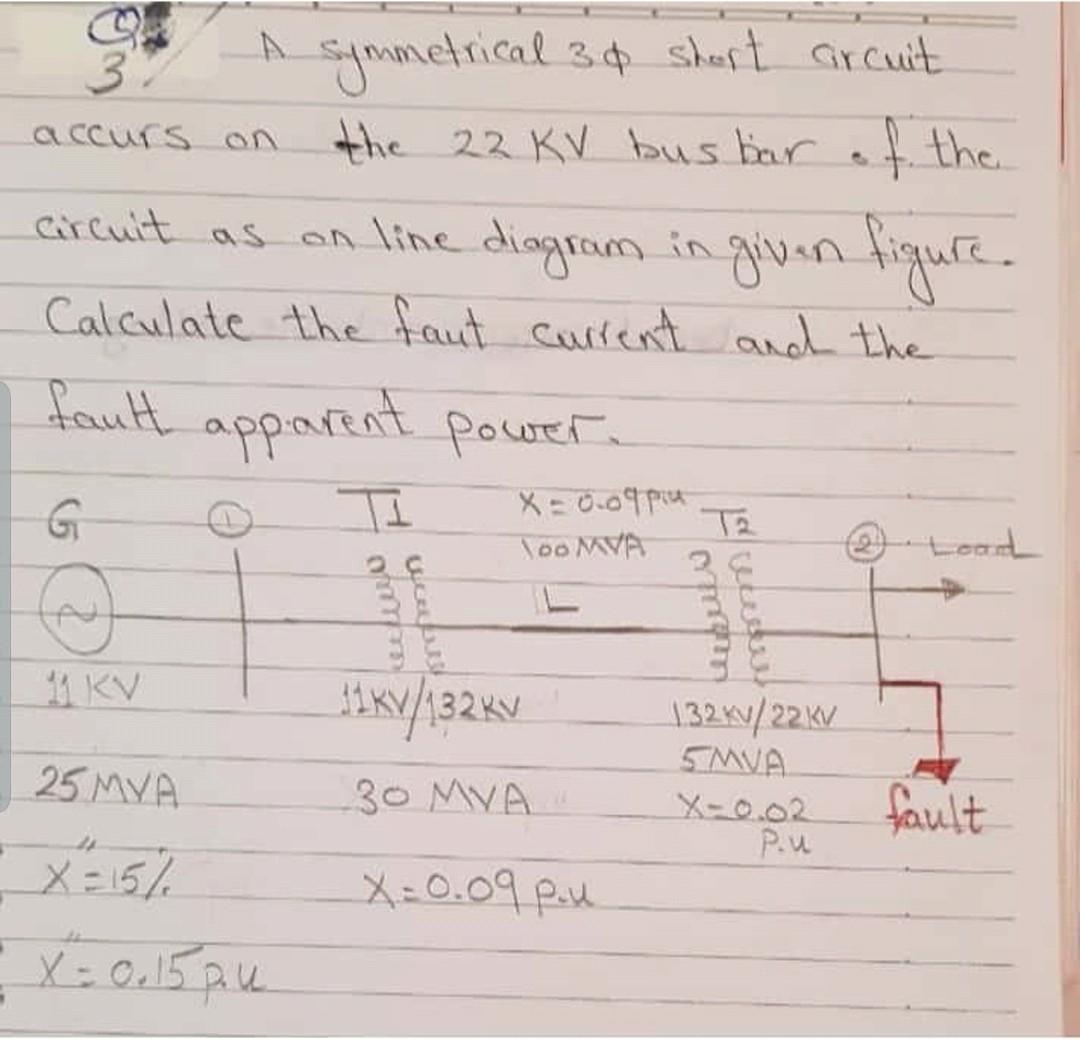 Q
3 A symmetrical 3φ short circuit
accurs on the 22 KV bus bar of the
circuit as on line diagram in given figure.
Calculate the faut current and the
fault apparent power.
G 1 T1 X = 0.09 p.u T2
100 MVA 2 Load
L
11 KV 11KV/132KV 132KV/22KV
5MVA
25 MVA 30 MVA X=0.02 fault
P.u
X"=15% X=0.09 p.u
X"= 0.15 p.u